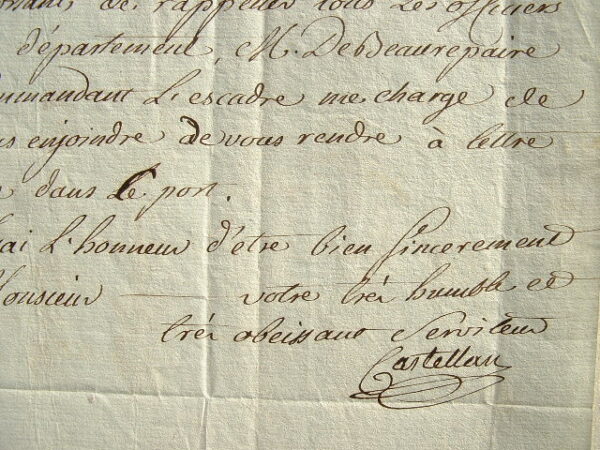 de rappeller tous les officiers
département, M. DeBeaurepaire
mmandant L'escadre me charge de
s enjoindre de vous rendre à lettre
dans Le port.
ai L'honneur d'être bien Sincerement
Monsieur votre très humble et
très obeissant Serviteur
Castellan